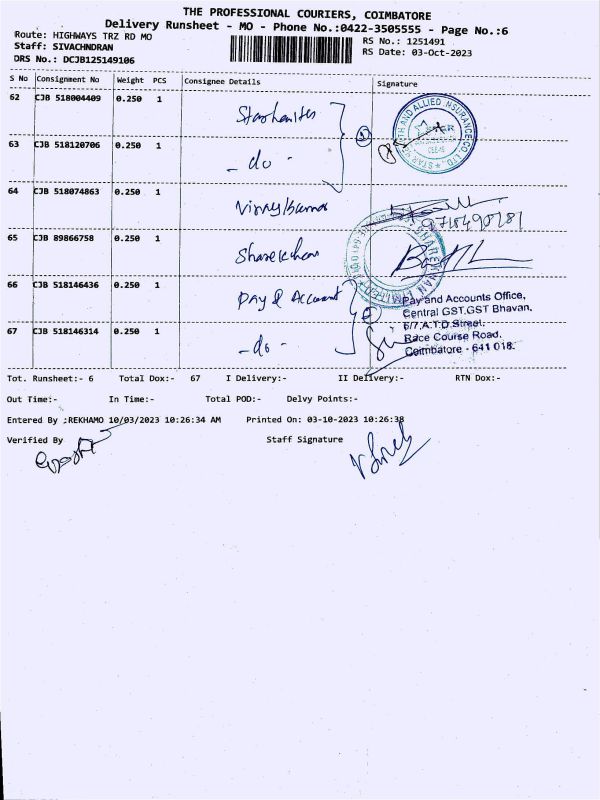 THE PROFESSIONAL COURIERS, COIMBATORE
Delivery Runsheet - MO - Phone No.:0422-3505555 - Page No.:6
Route: HIGHWAYS TRZ RD MO
Staff: SIVACHNDRAN
DRS No.: DCJB125149106
RS No.: 1251491
RS Date: 03-Oct-2023
S No Consignment No Weight PCS Consignee Details Signature
62 CJB 518004409 0.250 1
63 CJB 518120706 0.250 1 - do -
64 CJB 518074863 0.250 1 Vinay Kumar
65 CJB 89866758 0.250 1 Sharekhan
66 CJB 518146436 0.250 1 Pay & Account
67 CJB 518146314 0.250 1 - do -
Pay and Accounts Office,
Central GST.GST Bhavan.
6/7.A.T.D.Street.
Race Course Road.
Coimbatore - 641 018.
Tot. Runsheet:- 6 Total Dox:- 67 I Delivery:- II Delivery:- RTN Dox:-
Out Time:- In Time:- Total POD:- Delvy Points:-
Entered By ;REKHAMO 10/03/2023 10:26:34 AM Printed On: 03-10-2023 10:26:38
Verified By Staff Signature